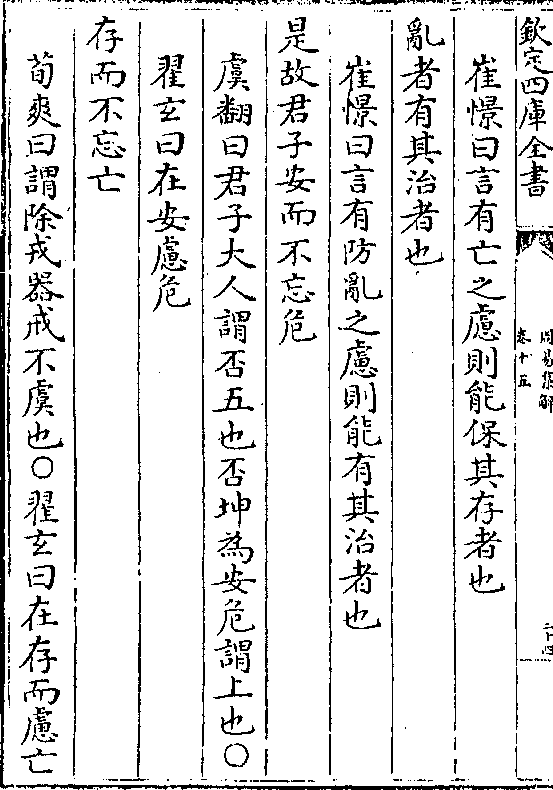 欽定四庫全書
周易集解
卷十五
二十四
崔憬曰言有亡之慮則能保其存者也
亂者有其治者也
崔憬曰言有防亂之慮則能有其治者也
是故君子安而不忘危
虞翻曰君子大人謂否五也否坤為安危謂上也〇
翟玄曰在安慮危
存而不忘亡
荀爽曰謂除戎器戒不虞也〇翟玄曰在存而慮亡